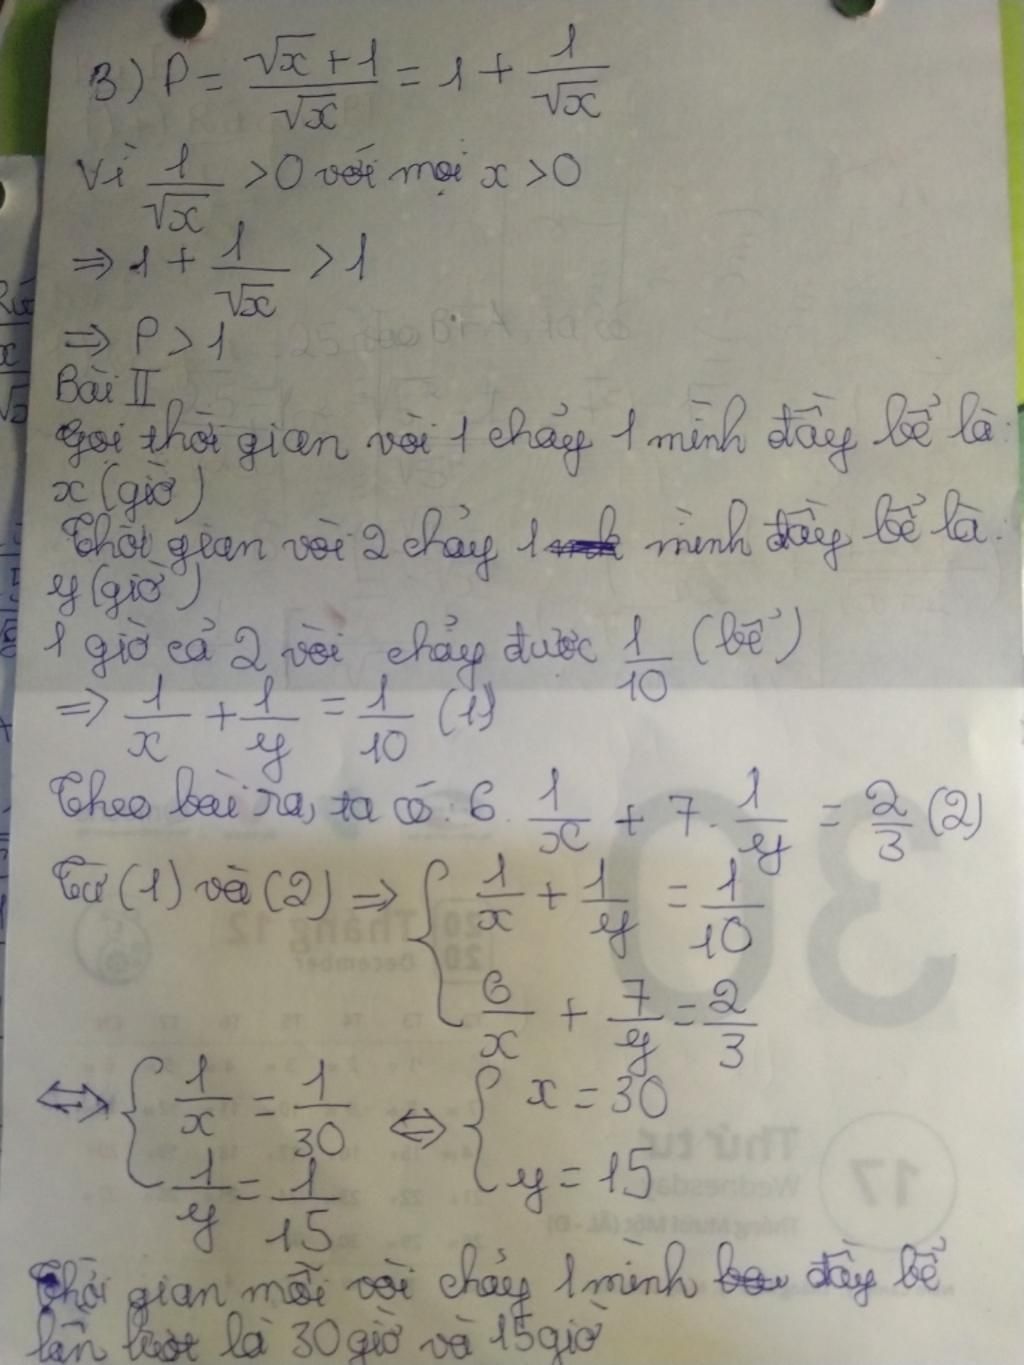 3) P = \frac{\sqrt{x}+1}{\sqrt{x}} = 1 + \frac{1}{\sqrt{x}}
Vì \frac{1}{\sqrt{x}} > 0 với mọi x > 0
⇒ 1 + \frac{1}{\sqrt{x}} > 1
⇒ P > 1
Bài II
Gọi thời gian vòi 1 chảy 1 mình đầy bể là:
x (giờ)
Thời gian vòi 2 chảy 1 mình đầy bể là:
y (giờ)
1 giờ cả 2 vòi chảy được \frac{1}{10} (bể)
⇒ \frac{1}{x} + \frac{1}{y} = \frac{1}{10} (1)
Theo bài ra, ta có: 6. \frac{1}{x} + 7. \frac{1}{y} = \frac{2}{3} (2)
Từ (1) và (2) ⇒ { \frac{1}{x} + \frac{1}{y} = \frac{1}{10}
\frac{6}{x} + \frac{7}{y} = \frac{2}{3}
⇔ { \frac{1}{x} = \frac{1}{30} ⇔ { x = 30
\frac{1}{y} = \frac{1}{15} y = 15
Thời gian mỗi vòi chảy 1 mình đầy bể
lần lượt là 30 giờ và 15 giờ
30
2020 Tháng 12
December
Thứ tư
Wednesday
17
Tháng Mười Một (ÂL - Đ)